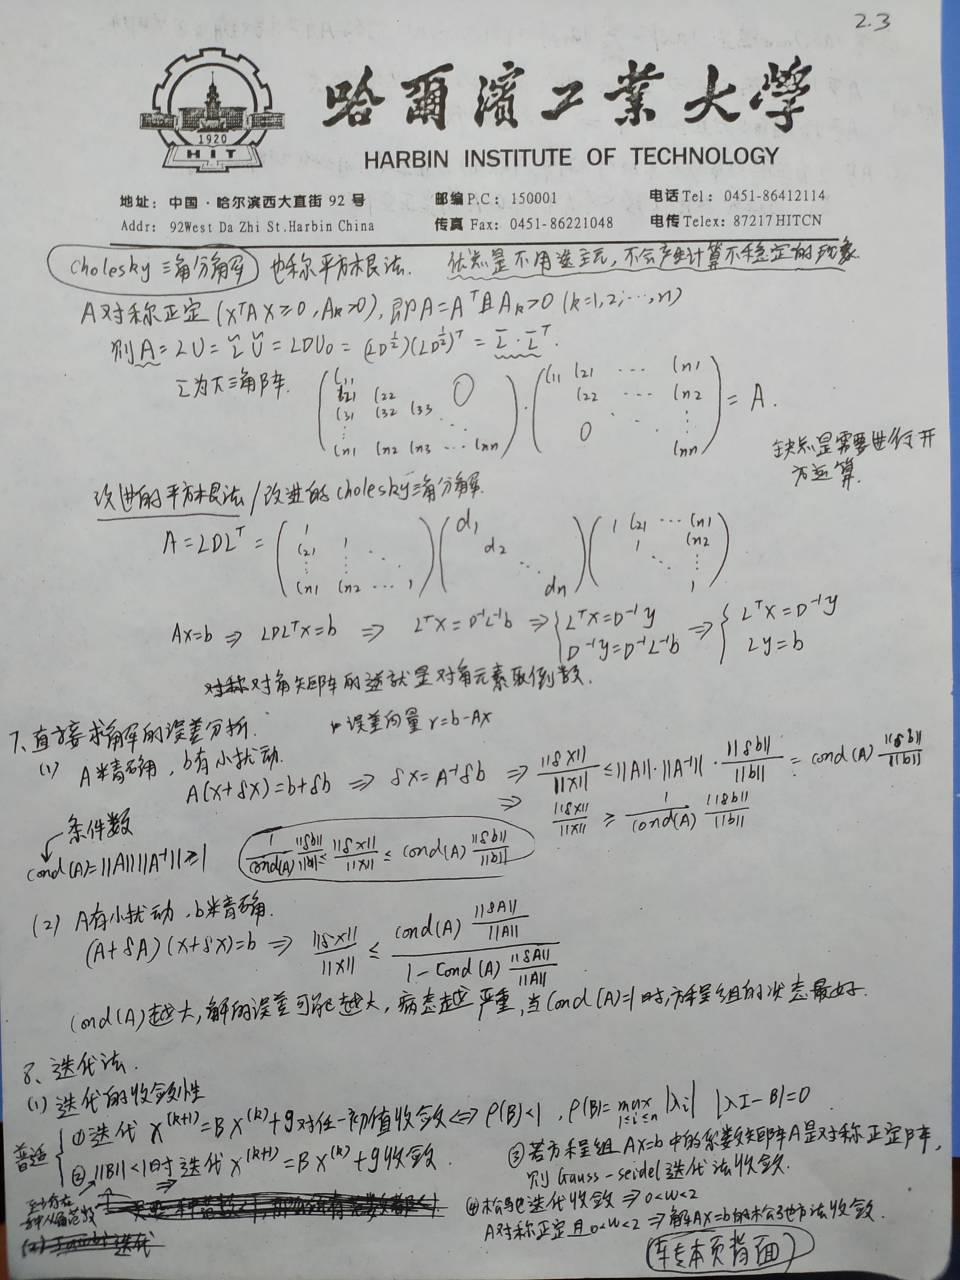 2.3
1920
HIT
哈爾濱工業大學
HARBIN INSTITUTE OF TECHNOLOGY
地址：中国·哈尔滨西大直街 92 号 邮编 P.C: 150001 电话 Tel: 0451-86412114
Addr: 92West Da Zhi St.Harbin China 传真 Fax: 0451-86221048 电传 Telex: 87217 HITCN
Cholesky 三角分解 也称平方根法. 优点是不用选主元, 不会产生计算不稳定的现象
A对称正定 (xᵀAx≥0, Aₖ>0), 即A=Aᵀ且Aₖ>0 (k=1,2,…,n)
则A=LU=L̃Ũ=LDU₀=(LD^½)(LD^½)ᵀ=L̃·L̃ᵀ.
L̃为下三角阵.
(l11
l21 l22 0
l31 l32 l33
⋮ ⋱
ln1 ln2 ln3 … lnn) · (l11 l21 … ln1
l22 … ln2
0 ⋱ ⋮
lnn) = A.
缺点是需要进行开
方运算.
改进的平方根法/改进的Cholesky三角分解.
A=LDLᵀ= (1
l21 1
⋮ ⋱
ln1 ln2 … 1) (d1
d2
⋱
dn) (1 l21 … ln1
1 ln2
⋱ ⋮
1)
Ax=b ⇒ LDLᵀx=b ⇒ Lᵀx=D⁻¹L⁻¹b ⇒ {Lᵀx=D⁻¹y
D⁻¹y=D⁻¹L⁻¹b ⇒ {Lᵀx=D⁻¹y
Ly=b
对角矩阵的逆就是对角元素取倒数.
7、直接求解的误差分析. 误差向量 r=b-Ax
(1) A精确, b有小扰动.
A(x+δx)=b+δb ⇒ δx=A⁻¹δb ⇒ ||δx||/||x|| ≤ ||A||·||A⁻¹||·||δb||/||b|| = cond(A) ||δb||/||b||
⇒ ||δx||/||x|| ≥ 1/cond(A) ||δb||/||b||
条件数
cond(A)=||A||||A⁻¹||≥1
1/cond(A) ||δb||/||b|| ≤ ||δx||/||x|| ≤ cond(A) ||δb||/||b||
(2) A有小扰动, b精确.
(A+δA)(x+δx)=b ⇒ ||δx||/||x|| ≤ cond(A) ||δA||/||A|| / (1-cond(A) ||δA||/||A||)
cond(A)越大, 解的误差可能越大, 病态越严重, 当cond(A)=1时,方程组的状态最好.
8、迭代法.
(1) 迭代的收敛性
普适
① 迭代 x^(k+1)=Bx^(k)+g对任一初值收敛⇔ρ(B)<1, ρ(B)=max 1≤i≤n |λi| |λI-B|=0
② ||B||<1时 ⇒ 迭代x^(k+1)=Bx^(k)+g收敛.
至少存在
③ 若方程组 Ax=b中的系数矩阵A是对称正定阵,
则Gauss-seidel迭代法收敛.
④ 松弛迭代收敛 ⇒ 0<w<2
A对称正定且0<w<2 ⇒ 解Ax=b的松弛方法收敛.
(转本页背面)